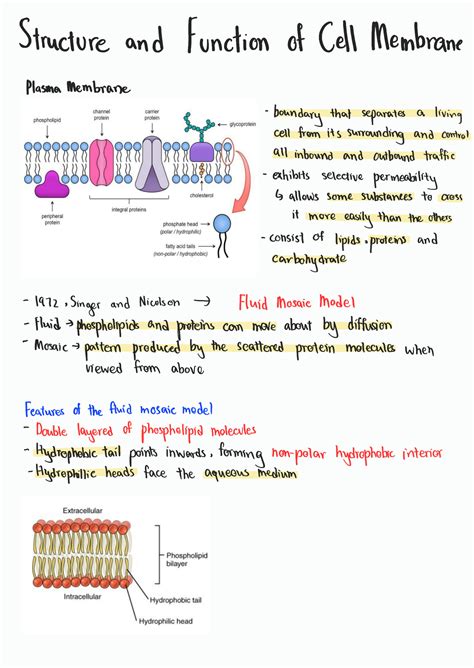 Structure and Function of Cell Membrane
Plasma Membrane
phospholipid
channel
protein
carrier
protein
glycoprotein
cholesterol
peripheral
protein
integral proteins
phosphate head
(polar / hydrophilic)
fatty acid tails
(non-polar / hydrophobic)
- boundary that separates a living
cell from its surrounding and control
all inbound and outbound traffic
- exhibits selective permeability
↳ allows some substances to cross
it more easily than the others
- consist of lipids, proteins and
carbohydrate
- 1972, Singer and Nicolson → Fluid Mosaic Model
- Fluid → phospholipids and proteins can move about by diffusion
- Mosaic → pattern produced by the scattered protein molecules when
viewed from above
Features of the fluid mosaic model
- Double layered of phospholipid molecules
- Hydrophobic tail points inwards, forming non-polar hydrophobic interior
- Hydrophillic heads face the aqueous medium
Extracellular
Phospholipid
bilayer
Intracellular
Hydrophobic tail
Hydrophilic head